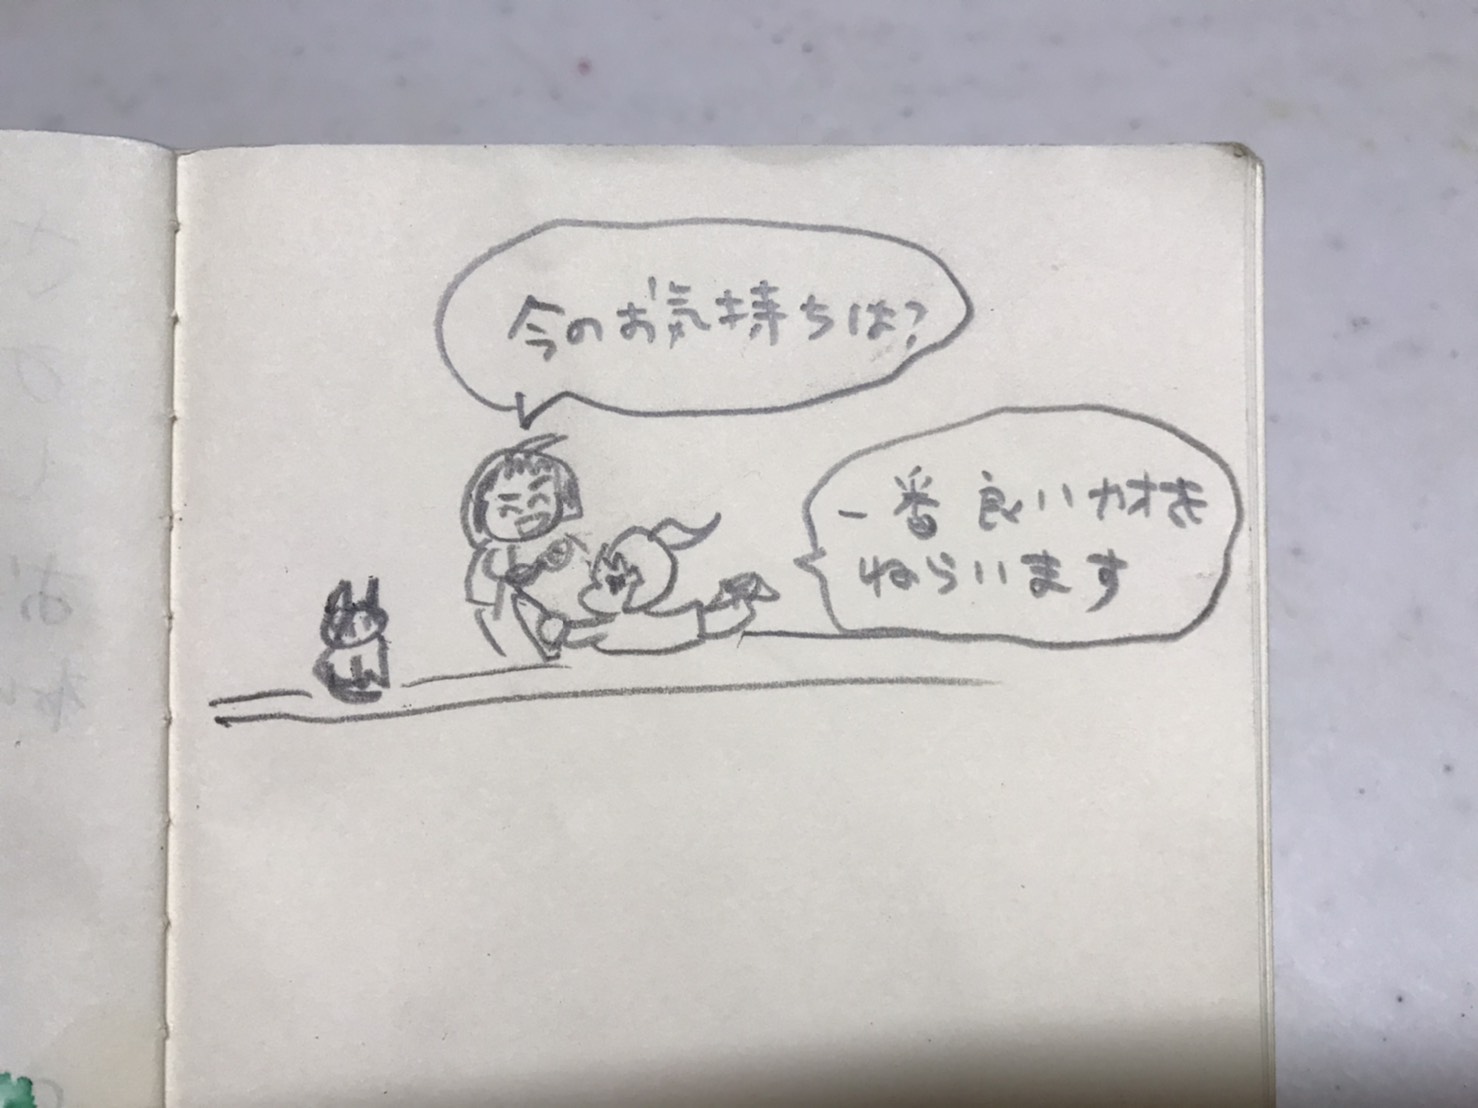 今のお気持ちは?
一番良いカオを
ねらいます